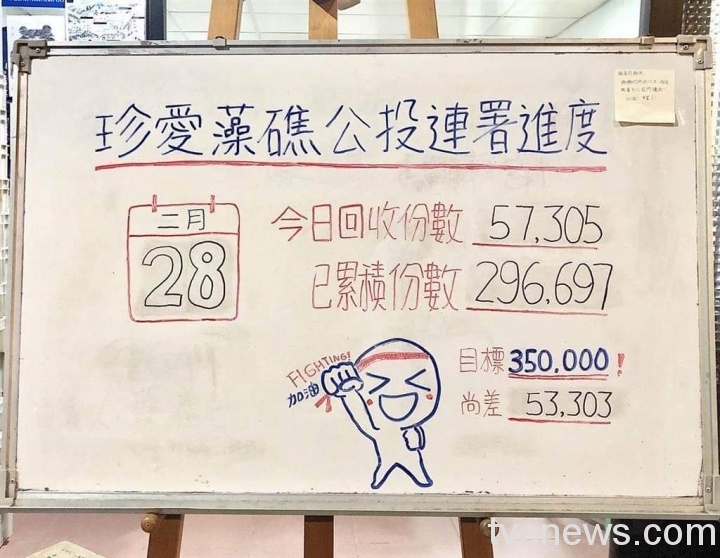 珍愛藻礁公投連署進度
二月
28
今日回收份數 57,305
已累積份數 296,697
目標 350,000!
尚差 53,303
FIGHTING!
加油
tycnews.com